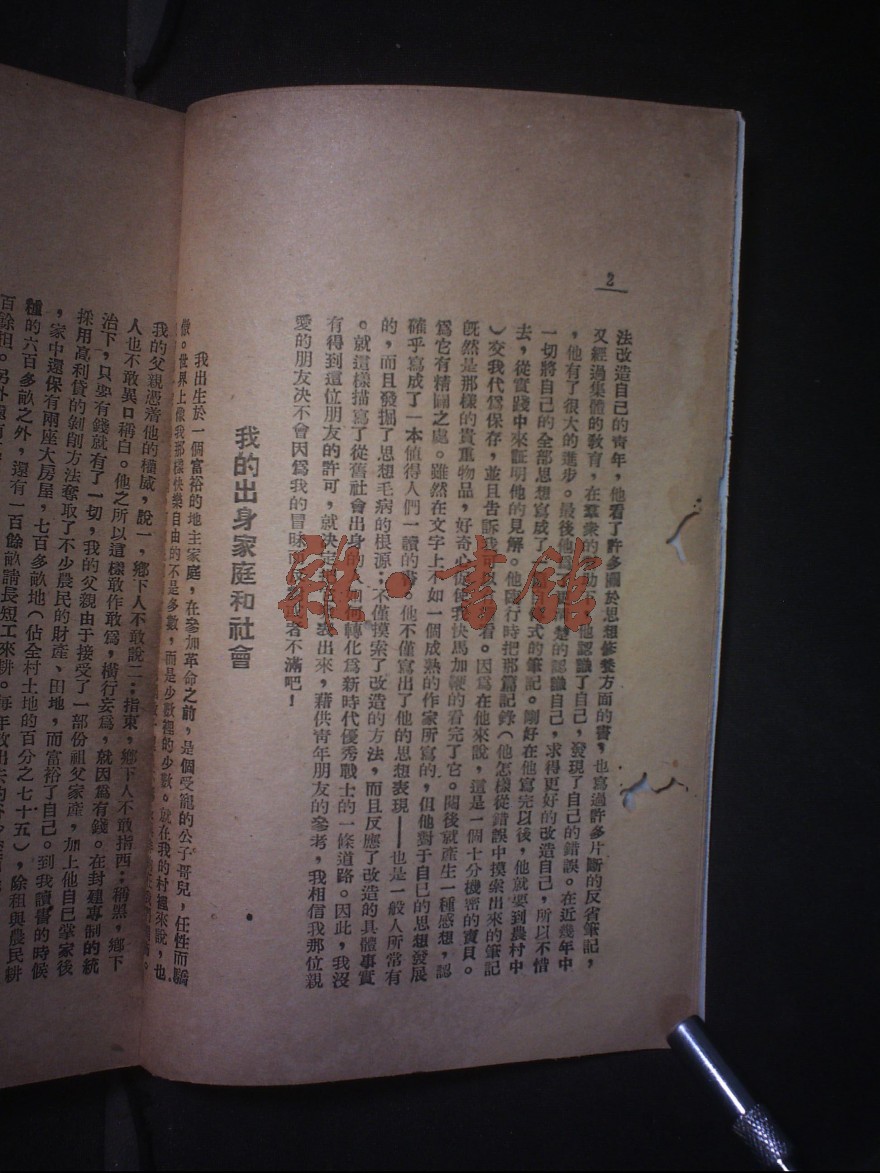 2
法改造自己的青年，他看了許多關於思想修養方面的書，也寫過許多片斷的反省筆記，
又經過集體的敎育，在羣衆的助下，他認識了自己，發現了自己的錯誤。在近幾年中
，他有了很大的進步。最後他爲了更淸楚的認識自己，求得更好的改造自己，所以不惜
一切將自己的全部思想寫成了自傳式的筆記。剛好在他寫完以後，他就要到農村中
去，從實踐中來証明他的見解。他臨行時把那篇記錄（他怎樣從錯誤中摸索出來的筆記
）交我代爲保存，並且告訴我可以看。因爲在他來說，這是一個十分機密的寶貝。
旣然是那樣的貴重物品，好奇心促使我快馬加鞭的看完了它。閱後就產生一種感想，認
爲它有精闢之處。雖然在文字上不如一個成熟的作家所寫的，但他對于自己的思想發展
確乎寫成了一本值得人們一讀的書。他不僅寫出了他的思想表現——也是一般人所常有
的，而且發掘了思想毛病的根源；不僅摸索了改造的方法，而且反應了改造的具體事實
。就這樣描寫了從舊社會出身的人如何轉化爲新時代優秀戰士的一條道路。因此，我沒
有得到這位朋友的許可，就決定把它發表出來，藉供靑年朋友的參考，我相信我那位親
愛的朋友決不會因爲我的冒昧而發表者不滿吧！
我的出身家庭和社會
我出生於一個富裕的地主家庭，在參加革命之前，是個受寵的公子哥兒，任性而驕
傲。世界上像我那樣快樂自由的不是多數，而是少數裡的少數。就在我的村裡來說，也
我的父親憑着他的權威，說一，鄉下人不敢說二；指東，鄉下人不敢指西；稱黑，鄉下
人也不敢異口稱白。他之所以這樣敢作敢爲，橫行妄爲，就因爲有錢。在封建專制的統
治下，只要有錢就有了一切，我的父親由于接受了一部份祖父家產，加上他自己掌家後
採用高利貸的剝削方法奪取了不少農民的財產、田地，而富裕了自己。到我讀書的時候
，家中還保有兩座大房屋，七百多畝地（佔全村土地的百分之七十五），除租與農民耕
種的六百多畝之外，還有一百餘畝請長短工來耕。每年放出去的
百餘担。另外還有
雜·書館